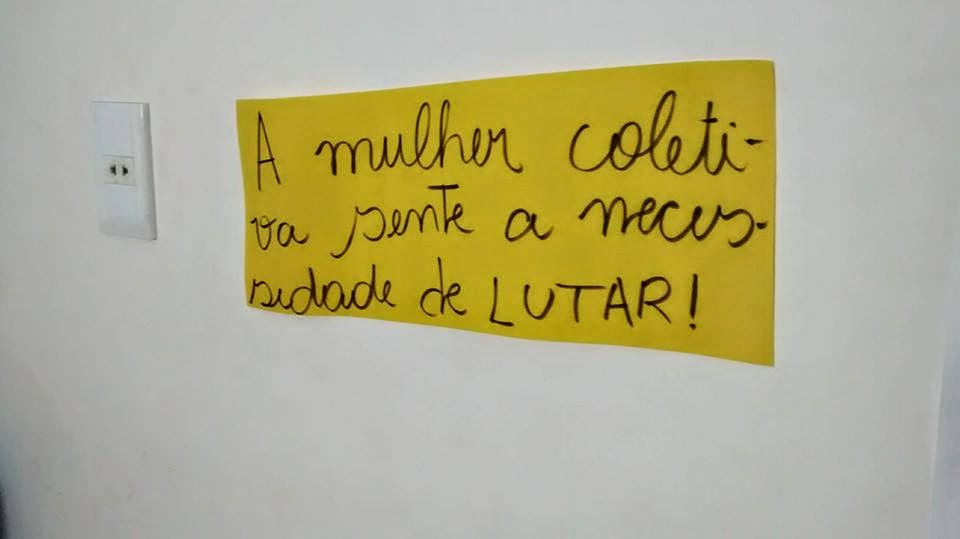 A mulher coleti-
va sente a neces-
sidade de LUTAR!